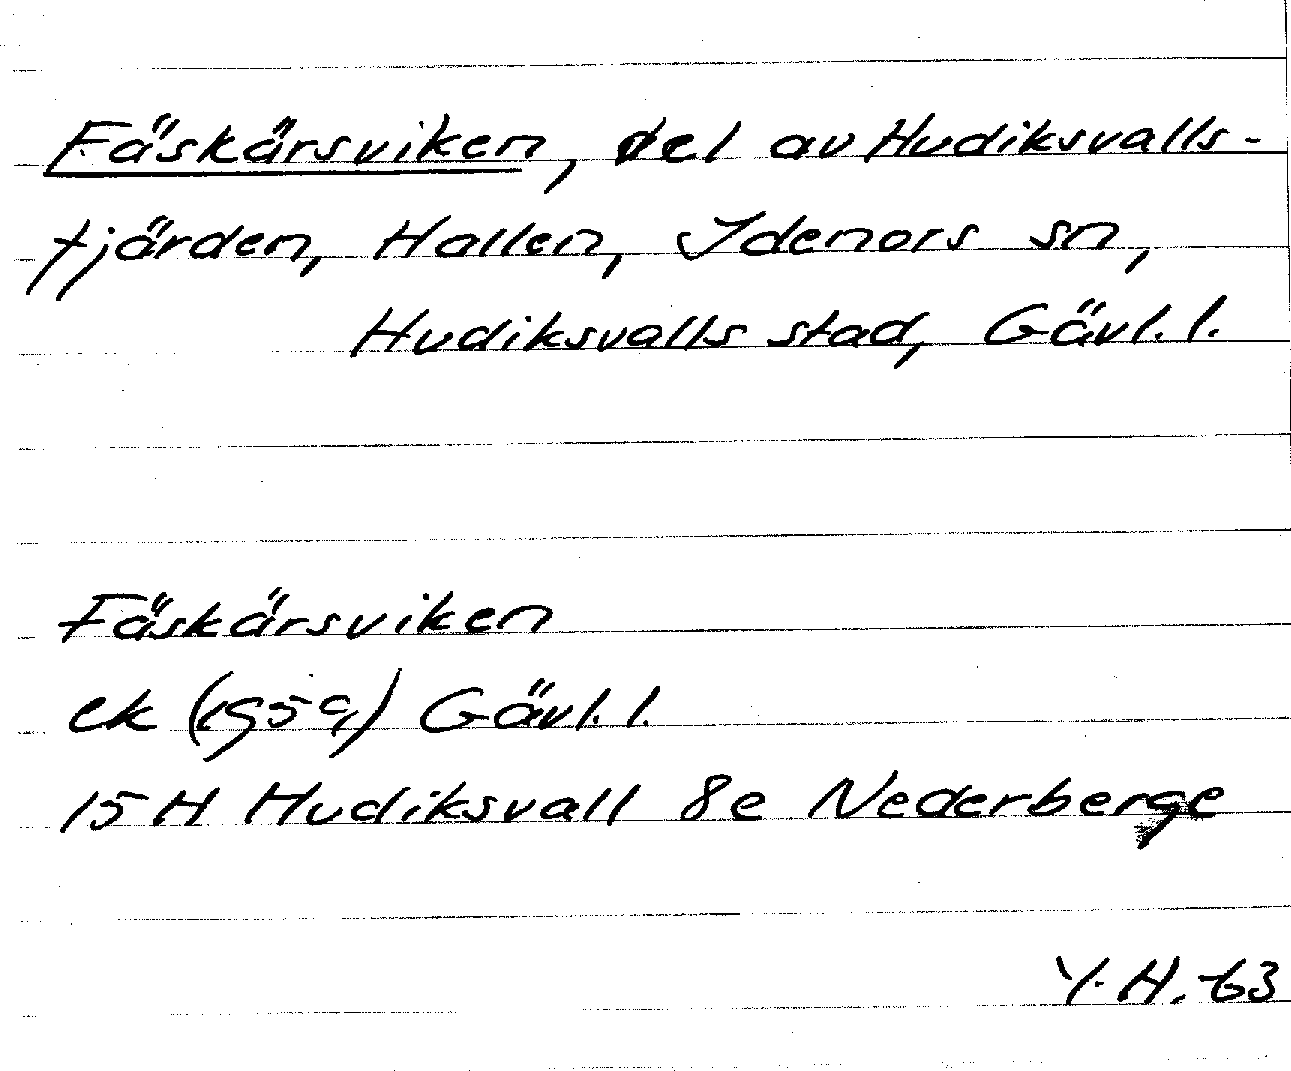 Fäskärsviken, del av Hudiksvalls-
fjärden, Hallen, Idenors sn,
Hudiksvalls stad, Gävl. l.
Fäskärsviken
ek (1959) Gävl. l.
15 H Hudiksvall 8e Nederberge
Y. H. -63